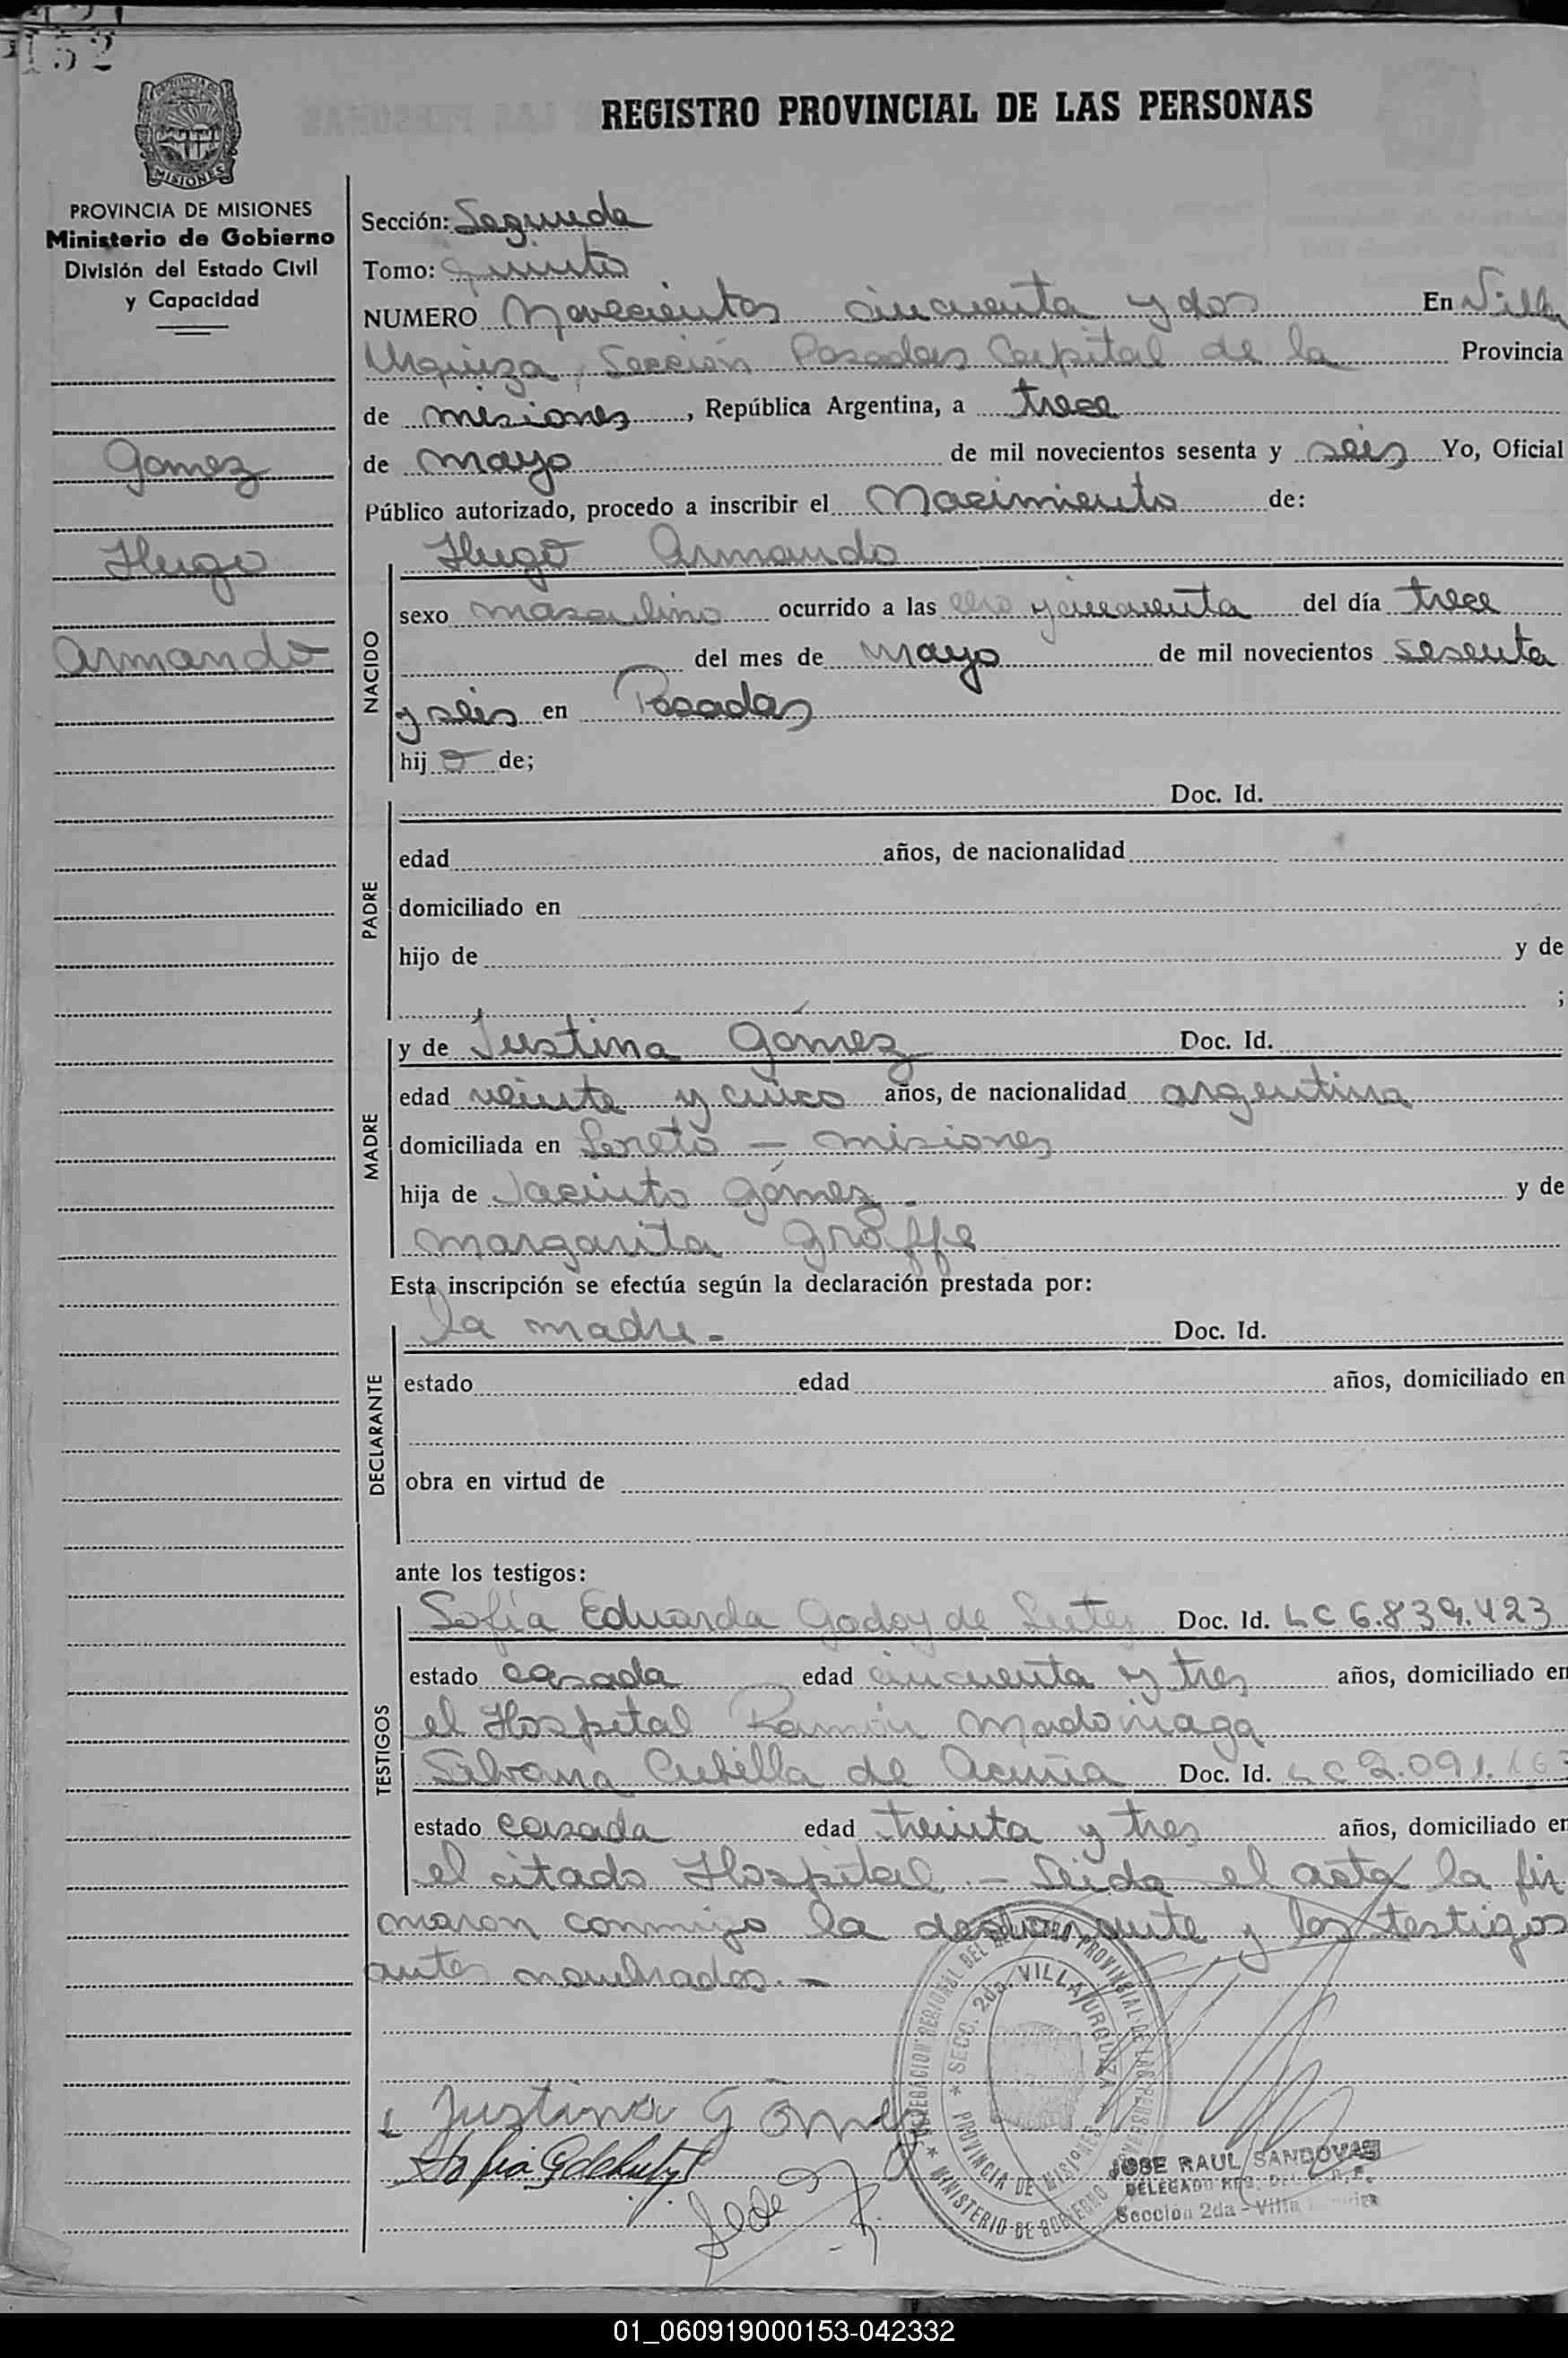 152
REGISTRO PROVINCIAL DE LAS PERSONAS
MISIONES
PROVINCIA DE MISIONES
Ministerio de Gobierno
División del Estado Civil
y Capacidad
Gomez
Hugo
Armando
Sección: Segunda
Tomo: Quinto
NUMERO Novecientos cincuenta y dos En Villa
Urquiza, Sección Posadas Capital de la Provincia
de misiones, República Argentina, a trece
de mayo de mil novecientos sesenta y seis Yo, Oficial
Público autorizado, procedo a inscribir el Nacimiento de:
Hugo Armando
NACIDO
sexo masculino ocurrido a las cero y cincuenta del día trece
del mes de mayo de mil novecientos sesenta
y seis en Posadas
hijo de;
PADRE
Doc. Id.
edad años, de nacionalidad
domiciliado en
hijo de y de
;
MADRE
y de Justina Gómez Doc. Id.
edad veinte y cinco años, de nacionalidad argentina
domiciliada en Loreto - misiones
hija de Jacinto Gómez. y de
margarita Groffe
Esta inscripción se efectúa según la declaración prestada por:
DECLARANTE
la madre.- Doc. Id.
estado edad años, domiciliado en
obra en virtud de
ante los testigos:
TESTIGOS
Sofía Eduarda Godoy de Doc. Id. LC 6.839.423
estado casada edad cincuenta y tres años, domiciliado en
el Hospital Ramón Madariaga
Silvana Cubilla de Acuña Doc. Id. LC 2.091.163
estado casada edad treinta y tres años, domiciliado en
el citado Hospital.- Leida el acta la fir
maron conmigo la declarante y los testigos
antes nombrados.-
Justina Gomez
Sofia
DELEGACION REGIONAL DEL REGISTRO PROVINCIAL DE LAS PERSONAS
SECC. 2da. VILLA URQUIZA
PROVINCIA DE MISIONES
MINISTERIO DE GOBIERNO
JOSE RAUL SANDOVAL
DELEGADO REG.
Sección 2da - Villa Urquiza
01_060919000153-042332